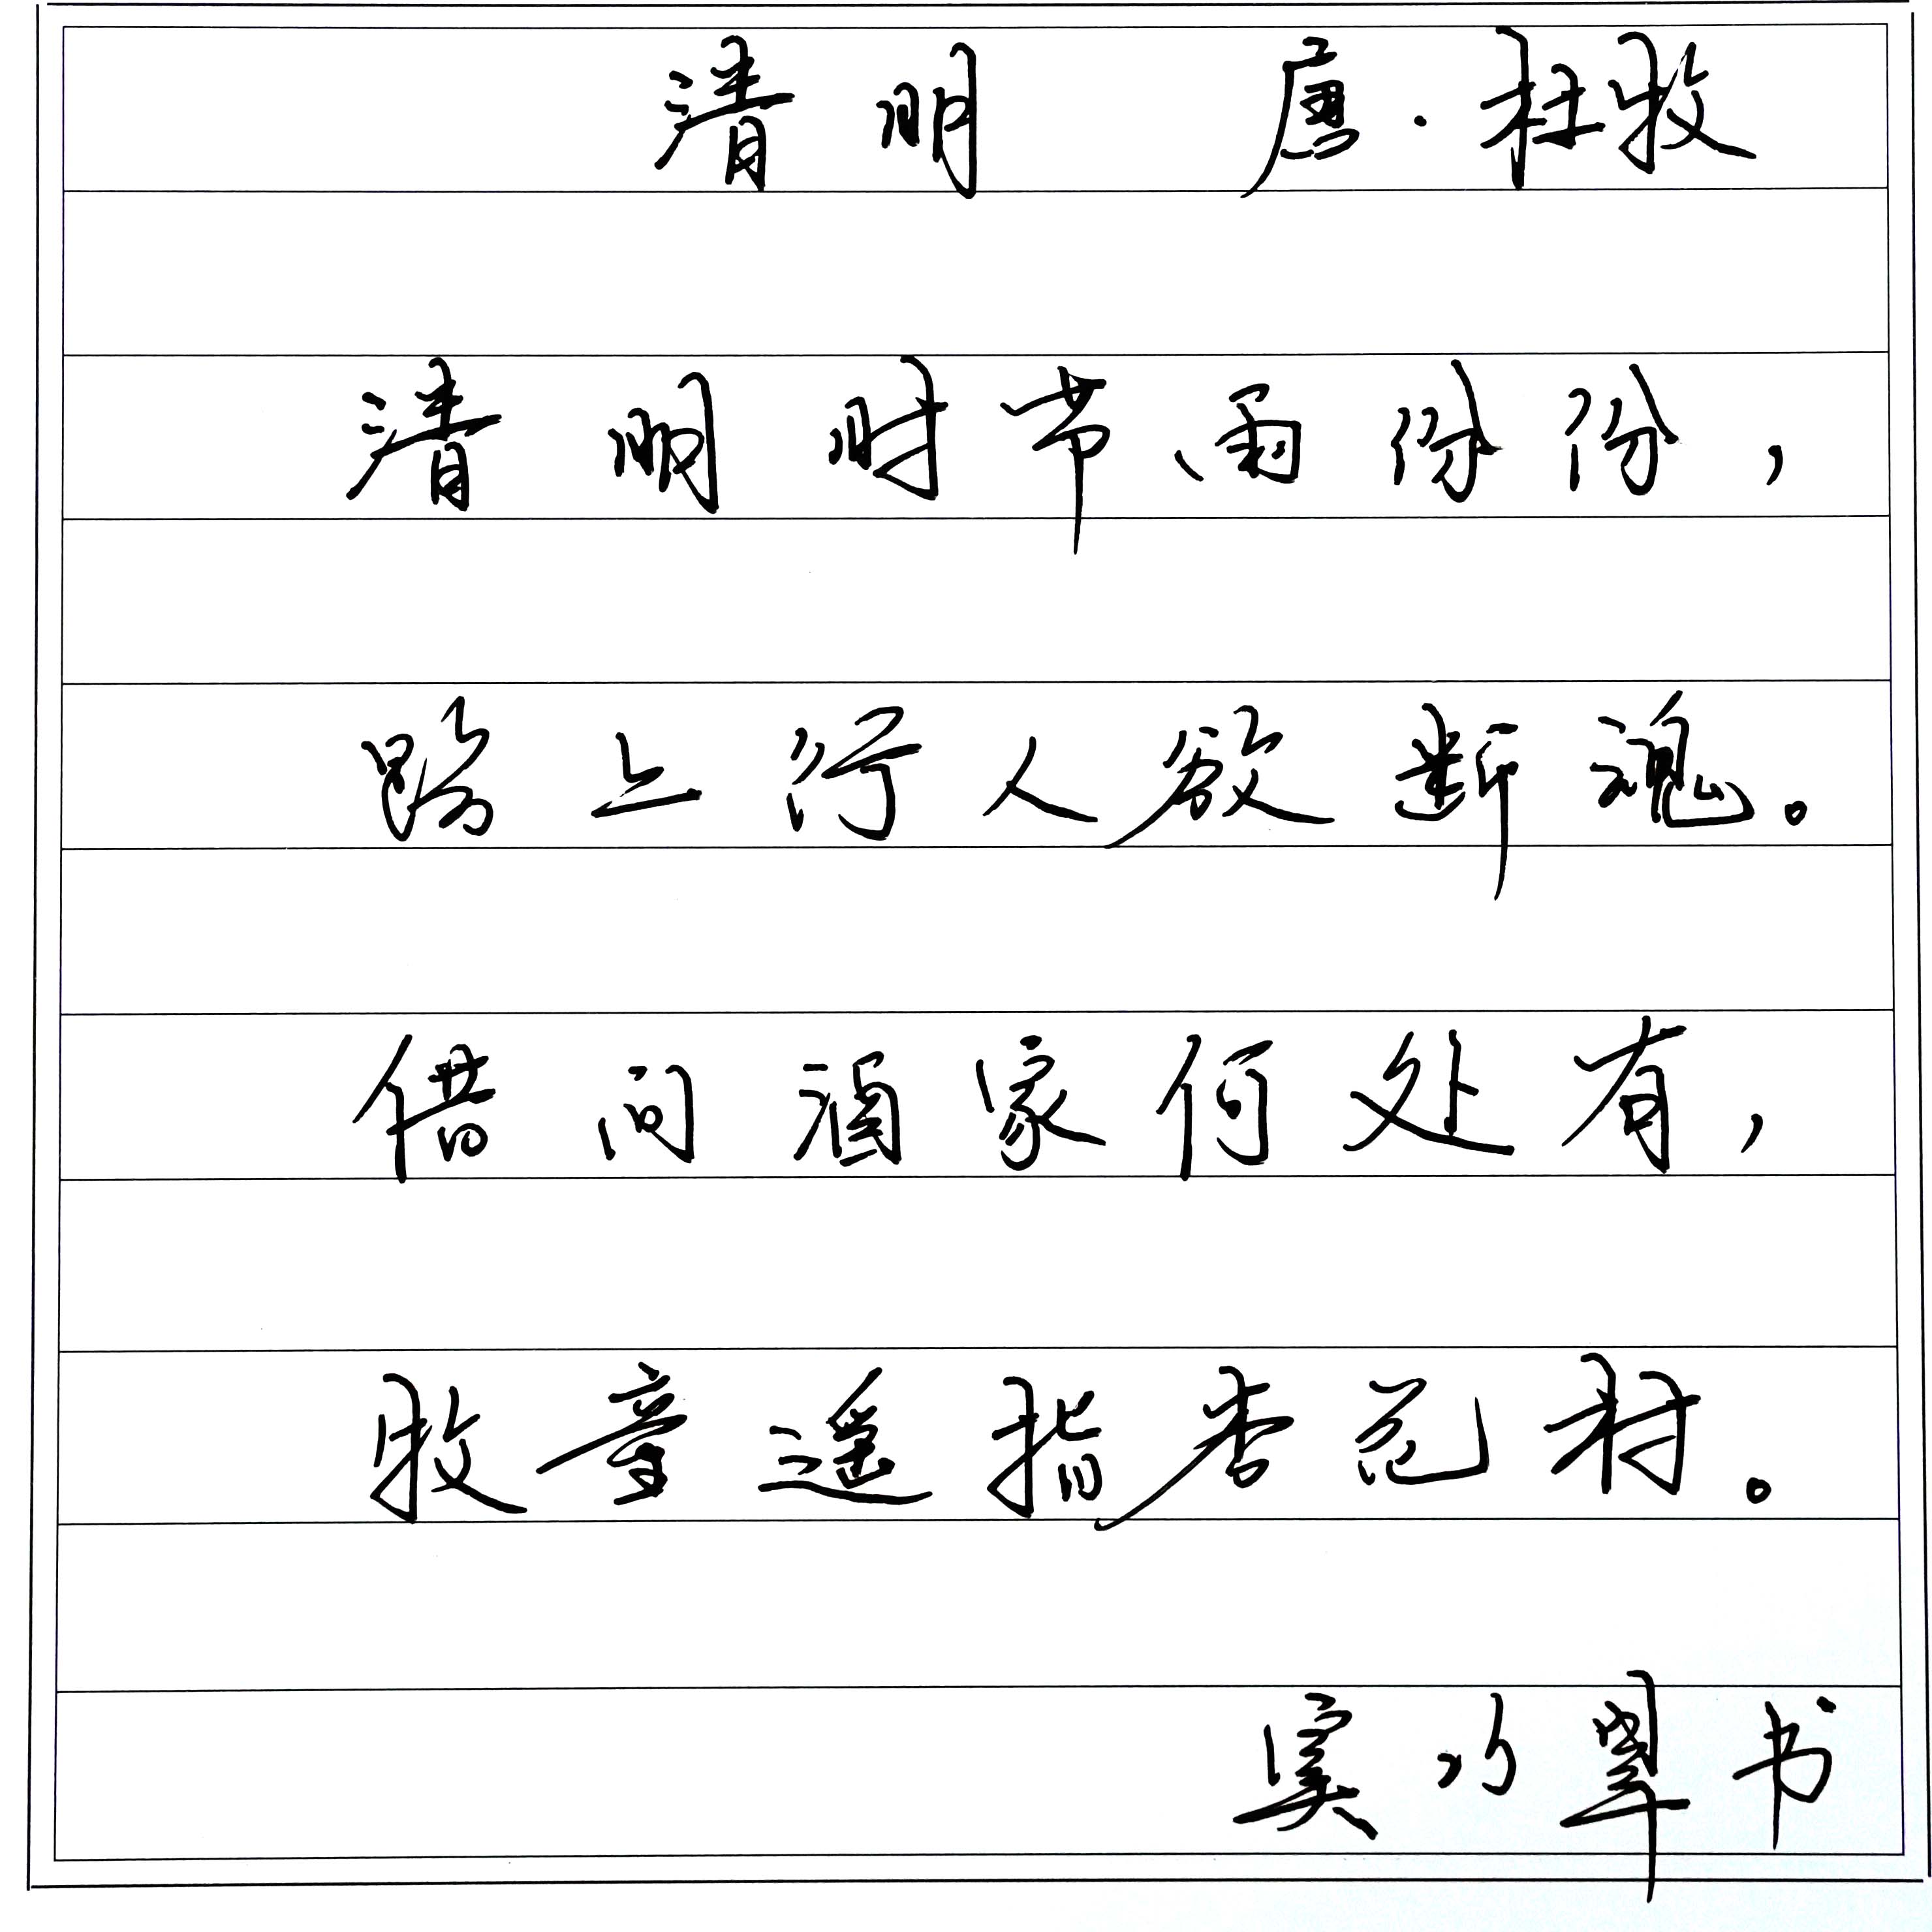 清明 唐·杜牧
清明时节雨份份，
路上行人欲断魂。
借问酒家何处有，
牧童遥指杏花村。
书